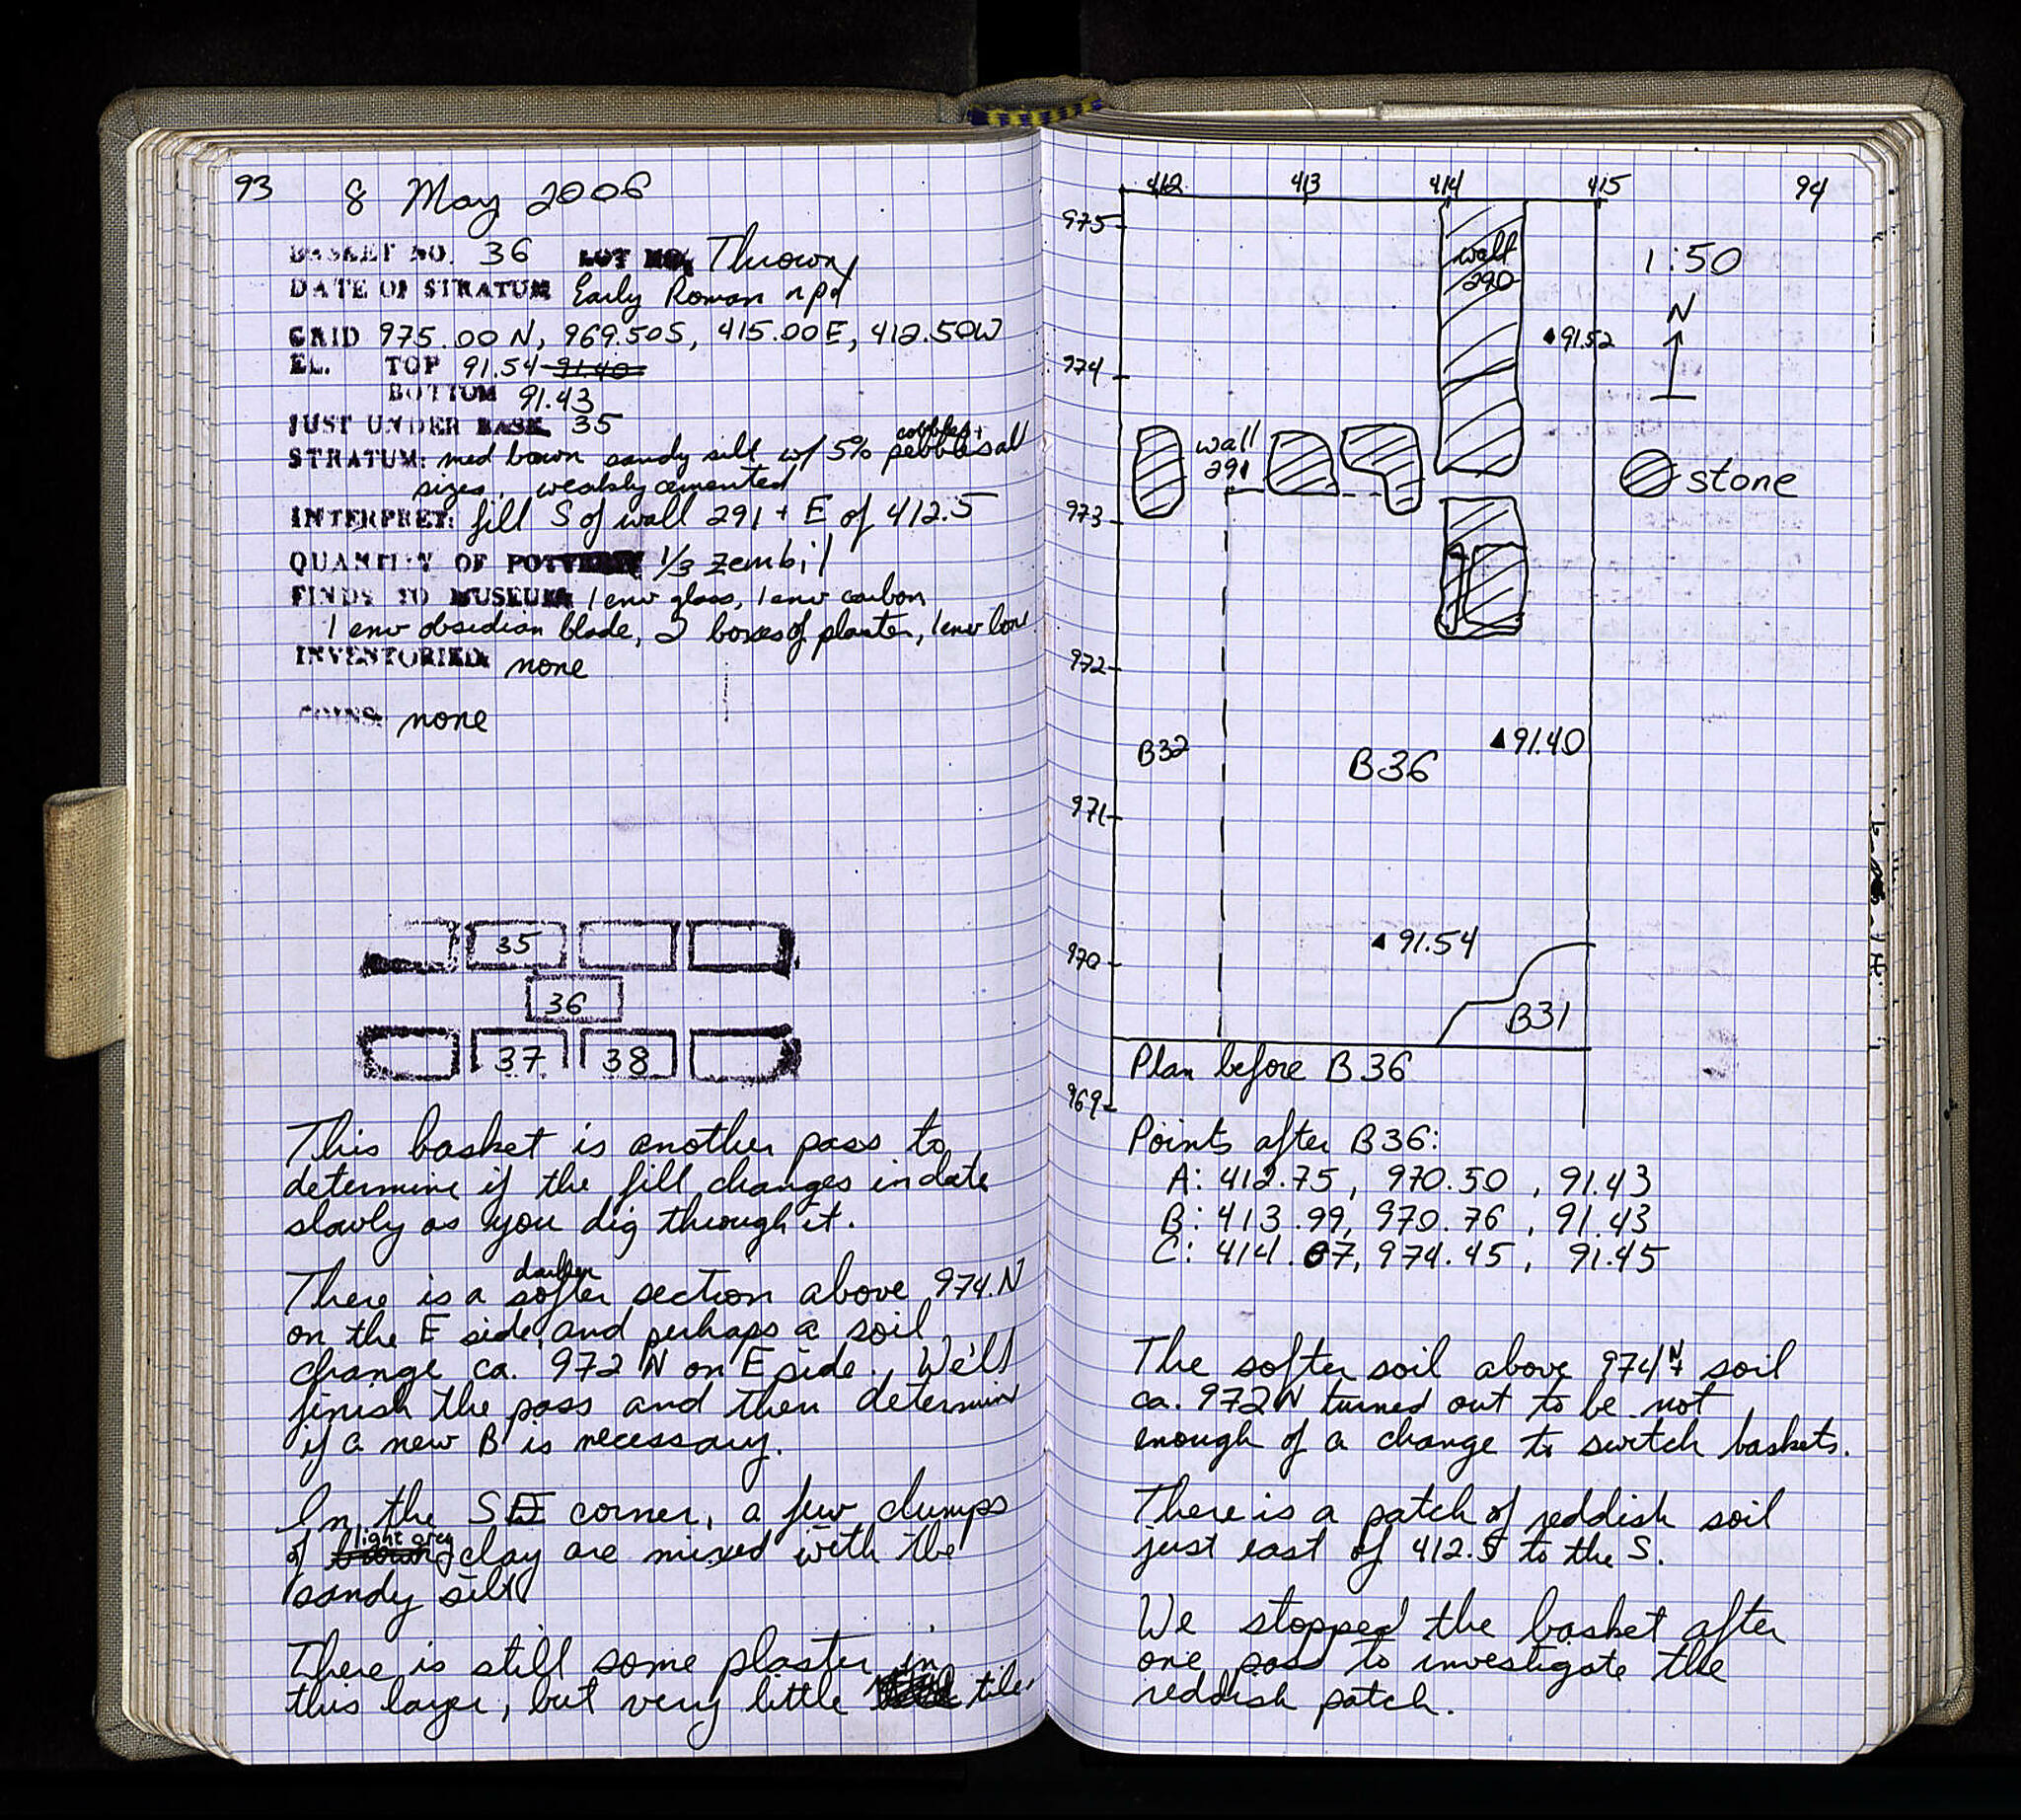 93 8 May 2006
BASKET NO. 36 LOT NO. Thrown
DATE OF STRATUM Early Roman npd
GRID 975.00 N, 969.50S, 415.00E, 412.50W
EL. TOP 91.54 91.40
BOTTOM 91.43
JUST UNDER BASK. 35
cobbles +
STRATUM: med brown sandy silt w/ 5% pebbles all
sizes, weakly cemented
INTERPRET: fill S of wall 291 + E of 412.5
QUANTITY OF POTTERY 1/3 zembil
FINDS TO MUSEUM 1 env glass, 1 env carbon
1 env obsidian blade, 2 boxes of plaster, 1 env bone
INVENTORIED: none
COINS: none
35
36
37 38
This basket is another pass to
determine if the fill changes in date
slowly as you dig through it.
darker
There is a softer section above 974.N
on the E side, and perhaps a soil
change ca. 972 N on E side. We'll
finish the pass and then determine
if a new B is necessary.
In the SE corner, a few clumps
light grey
of brown clay are mixed with the
sandy silt
There is still some plaster in
this layer, but very little tile.
94
412 413 414 415
975
974
973
972
971
970
969
wall
290
1:50
N
91.52
wall
291
stone
B32
B36
91.40
91.54
B31
Plan before B36
Points after B36:
A: 412.75, 970.50, 91.43
B: 413.99, 970.76, 91.43
C: 414.07, 974.45, 91.45
The softer soil above 974N + soil
ca. 972N turned out to be not
enough of a change to switch baskets.
There is a patch of reddish soil
just east of 412.5 to the S.
We stopped the basket after
one pass to investigate the
reddish patch.